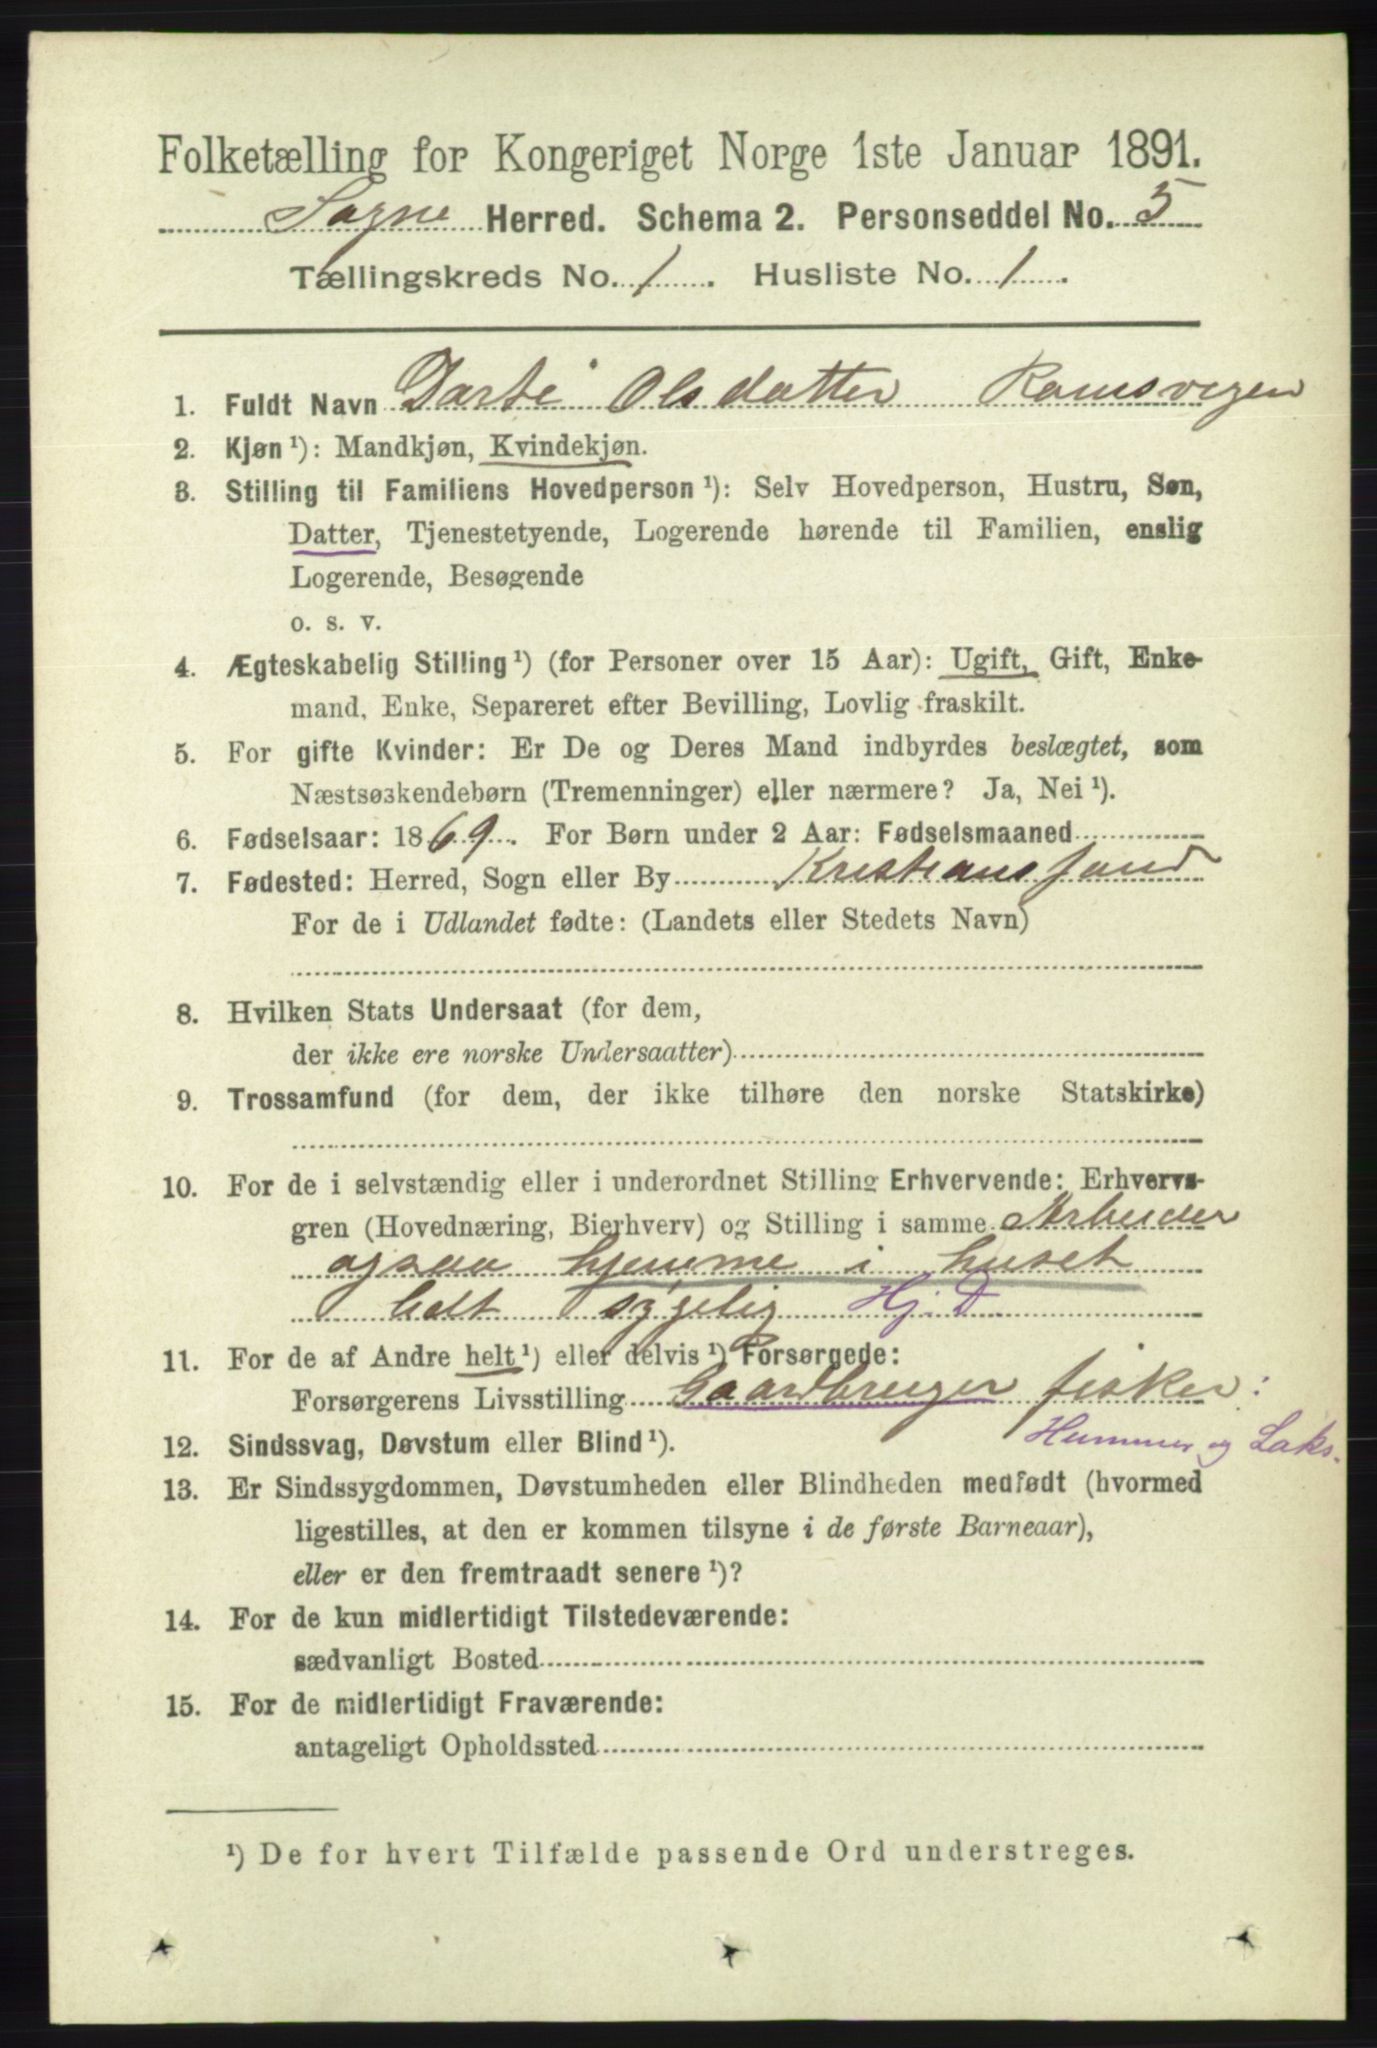 Folketælling for Kongeriget Norge 1ste Januar 1891.
Søgne Herred. Schema 2. Personseddel No. 5
Tællingskreds No. 1. Husliste No. 1.
1. Fuldt Navn Dorte Olsdatter Ramsvigen
2. Kjøn ¹): Mandkjøn, Kvindekjøn.
3. Stilling til Familiens Hovedperson ¹): Selv Hovedperson, Hustru, Søn,
Datter, Tjenestetyende, Logerende hørende til Familien, enslig
Logerende, Besøgende
o. s. v.
4. Ægteskabelig Stilling ¹) (for Personer over 15 Aar): Ugift, Gift, Enke-
mand, Enke, Separeret efter Bevilling, Lovlig fraskilt.
5. For gifte Kvinder: Er De og Deres Mand indbyrdes beslægtet, som
Næstsøskendebørn (Tremenninger) eller nærmere? Ja, Nei ¹).
6. Fødselsaar: 1869. For Børn under 2 Aar: Fødselsmaaned
7. Fødested: Herred, Sogn eller By Kristiansand
For de i Udlandet fødte: (Landets eller Stedets Navn)
8. Hvilken Stats Undersaat (for dem,
der ikke ere norske Undersaatter)
9. Trossamfund (for dem, der ikke tilhøre den norske Statskirke)
10. For de i selvstændig eller i underordnet Stilling Erhvervende: Erhvervs-
gren (Hovednæring, Bierhverv) og Stilling i samme Arbeider
ogsaa hjemme i huset
helt sygelig Hj. D
11. For de af Andre helt ¹) eller delvis ¹) Forsørgede:
Forsørgerens Livsstilling Gaardbruger fisker:
Hummer og Laks.
12. Sindssvag, Døvstum eller Blind ¹).
13. Er Sindssygdommen, Døvstumheden eller Blindheden medfødt (hvormed
ligestilles, at den er kommen tilsyne i de første Barneaar),
eller er den fremtraadt senere ¹)?
14. For de kun midlertidigt Tilstedeværende:
sædvanligt Bosted
15. For de midlertidigt Fraværende:
antageligt Opholdssted
¹) De for hvert Tilfælde passende Ord understreges.